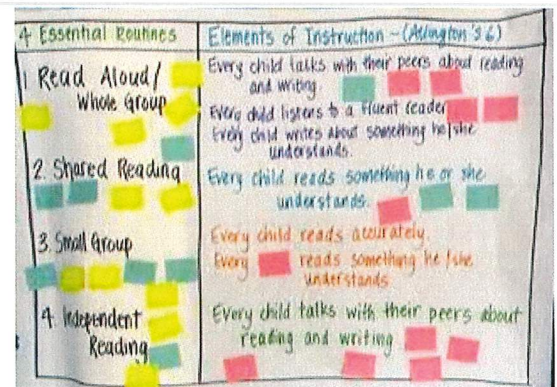 4 Essential Routines
Elements of Instruction - (Allington's 6)
1 Read Aloud/
Whole Group
Every child talks with their peers about reading
and writing.
Every child listens to a fluent reader
Every child writes about something he/she
understands.
2. Shared Reading
Every child reads something he or she
understands.
3. Small Group
Every child reads accurately.
Every reads something he/she
understands
4. Independent
Reading
Every child talks with their peers about
reading and writing